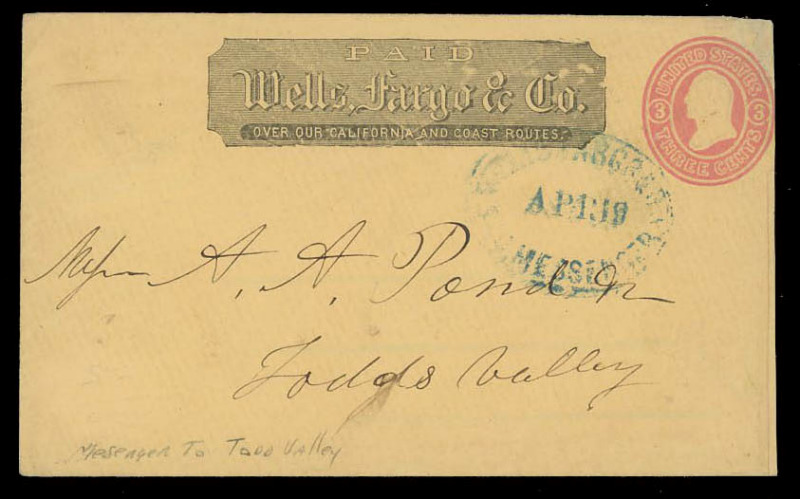 PAID
Wells, Fargo & Co.
OVER OUR CALIFORNIA AND COAST ROUTES.
UNITED STATES
3 3
THREE CENTS
AP 19
MESSENGER
A. A. Pond
Todds Valley
Messenger To Todd Valley